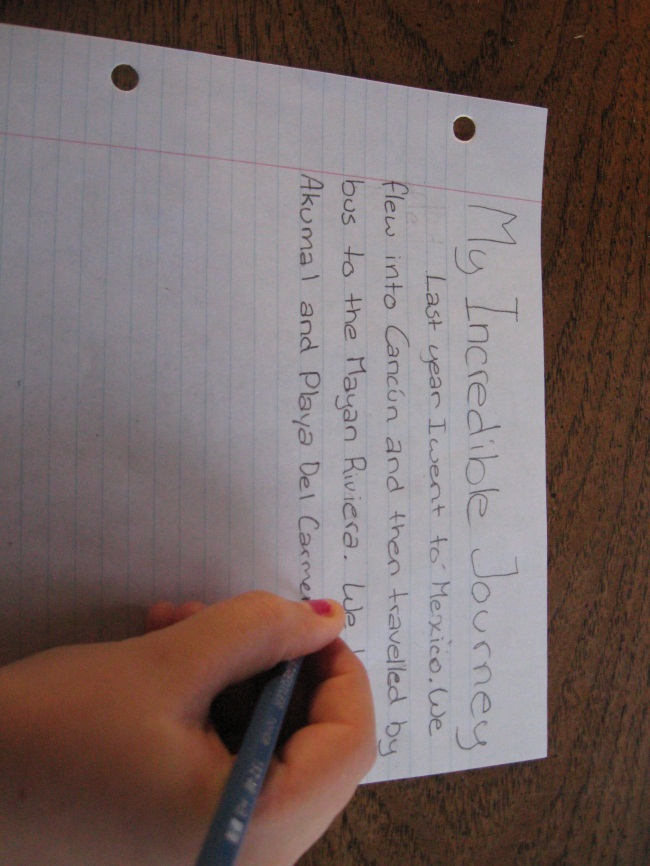 My Incredible Journey
Last year I went to Mexico. We
flew into Cancún and then travelled by
bus to the Mayan Riviera. We
Akumal and Playa Del Carmen